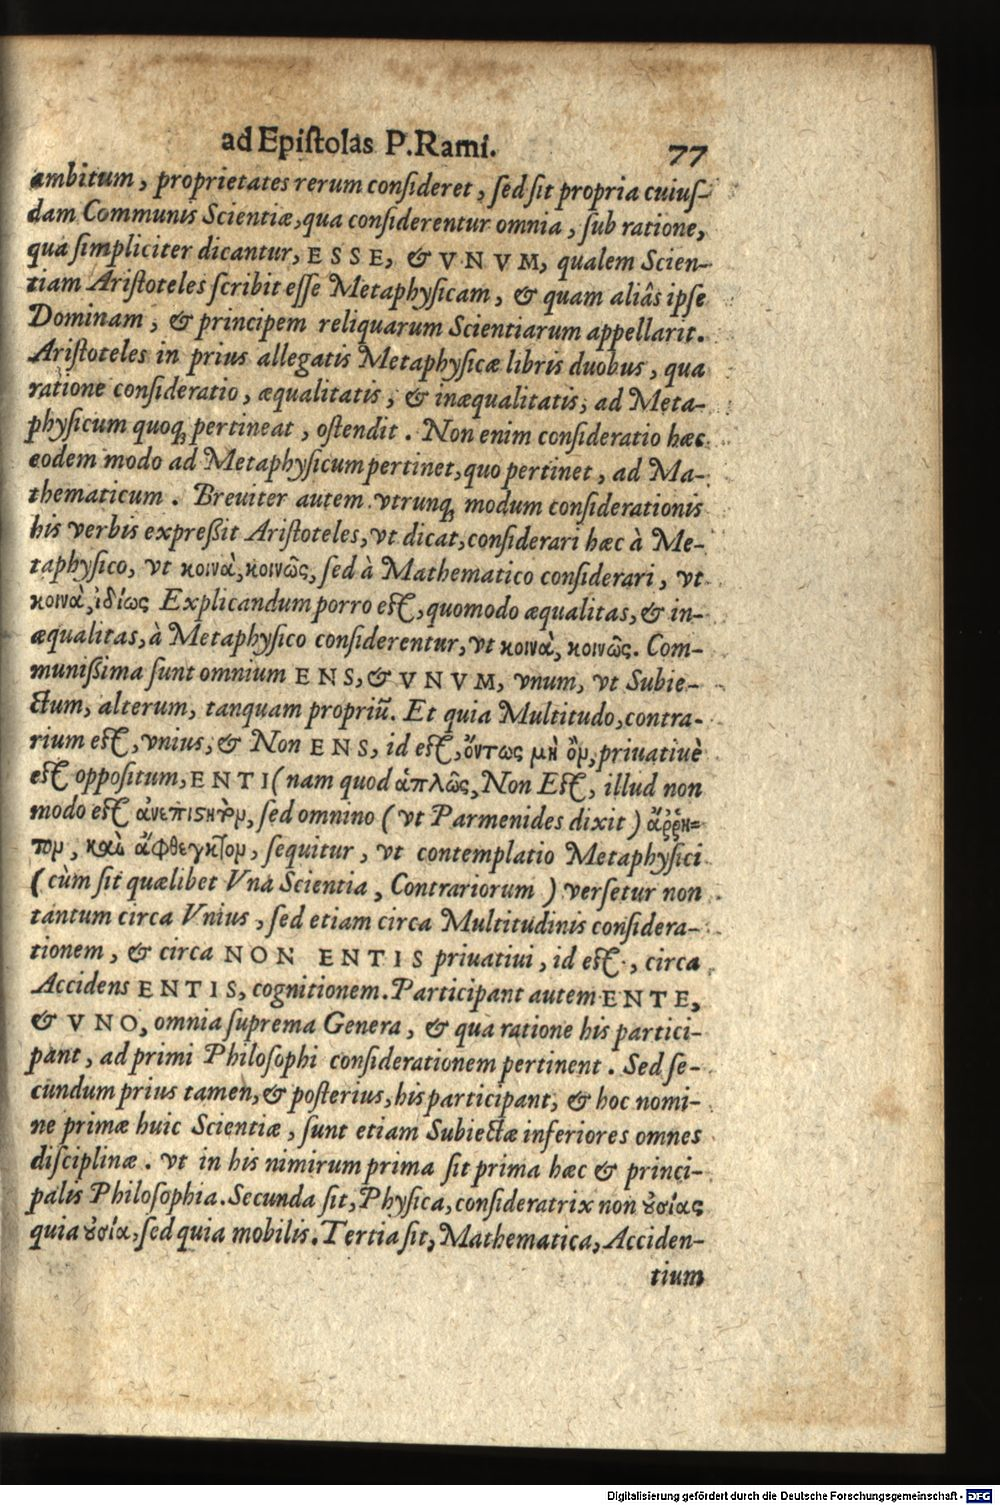 ad Epiſtolas P. Rami. 77
ambitum, proprietates rerum conſideret, ſed ſit propria cuiuſ-
dam Communis Scientiæ, qua conſiderentur omnia, ſub ratione,
qua ſimpliciter dicantur, ESSE, & VNVM, qualem Scien-
tiam Ariſtoteles ſcribit eſſe Metaphyſicam, & quam aliâs ipſe
Dominam, & principem reliquarum Scientiarum appellarit.
Ariſtoteles in prius allegatis Metaphyſicæ libris duobus, qua
ratione conſideratio, æqualitatis, & inæqualitatis, ad Meta-
phyſicum quoq; pertineat, oſtendit. Non enim conſideratio hæc
eodem modo ad Metaphyſicum pertinet, quo pertinet, ad Ma-
thematicum. Breuiter autem vtrunq; modum conſiderationis
his verbis expreßit Ariſtoteles, vt dicat, conſiderari hæc à Me-
taphyſico, vt κοινὰ, κοινῶς, ſed à Mathematico conſiderari, vt
κοινὰ, ἰδίως Explicandum porro eſt, quomodo æqualitas, & in-
æqualitas, à Metaphyſico conſiderentur, vt κοινὰ, κοινῶς. Com-
munißima ſunt omnium ENS, & VNVM, vnum, vt Subie-
ctum, alterum, tanquam propriũ. Et quia Multitudo, contra-
rium eſt, vnius, & Non ENS, id eſt, ὄντως μὴ ὂν, priuatiuè
eſt oppoſitum, ENTI (nam quod ἁπλῶς, Non Eſt, illud non
modo eſt ἀνεπιστητὸν, ſed omnino (vt Parmenides dixit) ἄῤῥη=
τον, καὶ ἄφθεγκτον, ſequitur, vt contemplatio Metaphyſici
(cùm ſit quælibet Vna Scientia, Contrariorum) verſetur non
tantum circa Vnius, ſed etiam circa Multitudinis conſidera-
tionem, & circa NON ENTIS priuatiui, id eſt, circa
Accidens ENTIS, cognitionem. Participant autem ENTE,
& VNO, omnia ſuprema Genera, & qua ratione his partici-
pant, ad primi Philoſophi conſiderationem pertinent. Sed ſe-
cundum prius tamen, & poſterius, his participant, & hoc nomi-
ne primæ huic Scientiæ, ſunt etiam Subiectæ inferiores omnes
diſciplinæ. vt in his nimirum prima ſit prima hæc & princi-
palis Philoſophia. Secunda ſit, Phyſica, conſideratrix non ȣσίας
quia ȣσία, ſed quia mobilis. Tertia ſit, Mathematica, Acciden-
tium
Digitalisierung gefördert durch die Deutsche Forschungsgemeinschaft - DFG